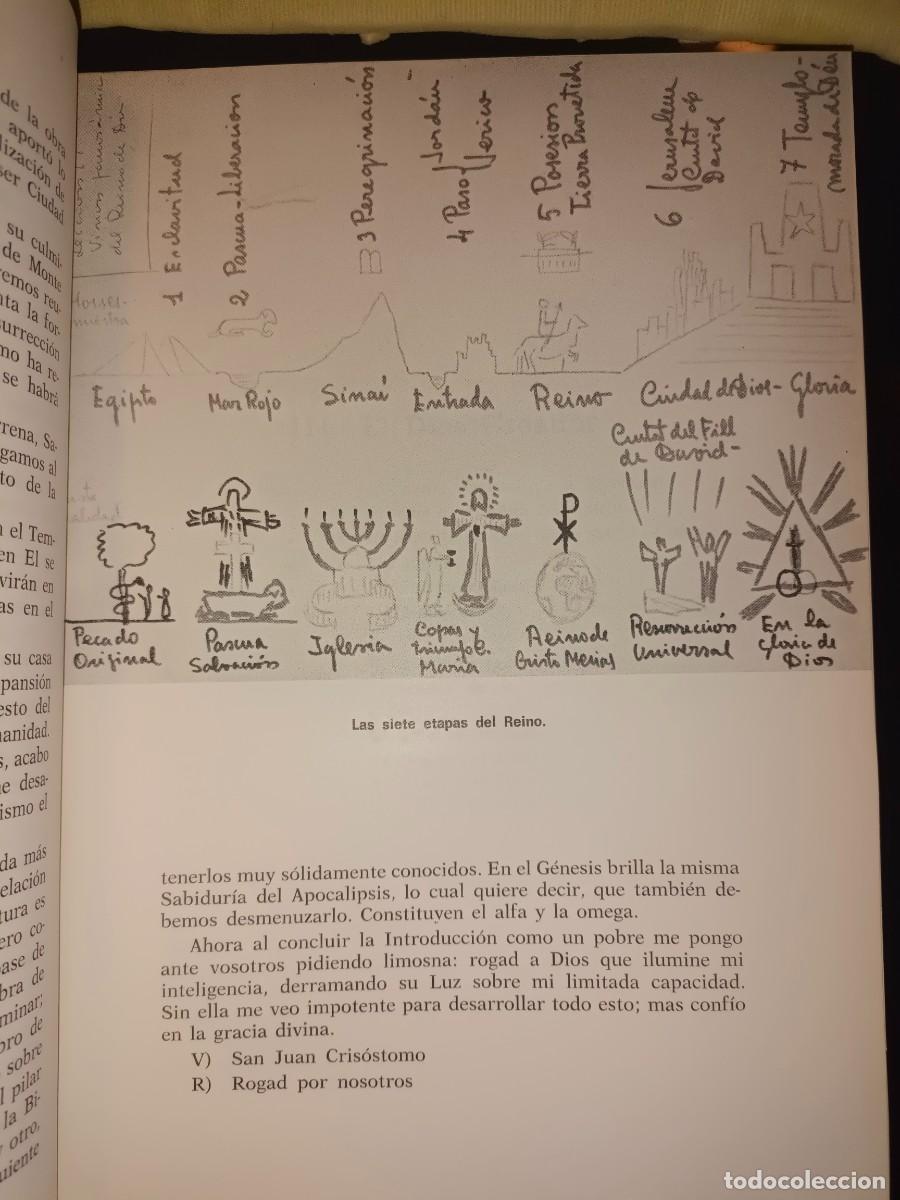 de la obra
aportó lo
lización de
ser Ciudad
su culmi-
de Monte
remos reu-
nta la for-
surrección
mo ha re-
se habrá
rrena, Sa-
gamos al
to de la
n el Tem-
en El se
virán en
as en el
su casa
pansión
esto del
manidad.
s, acabo
ne desa-
ismo el
da más
elación
tura es
ero co-
base de
bra de
minar;
bro de
sobre
l pilar
la Bi-
y otro,
uiente
Visión panorámica
del Reino de Dios
1 Esclavitud
2 Pascua-Liberacion
3 Peregrinación
4 Paso Jordán
Jerico
5 Posesion
Tierra Prometida
6 Jerusalem
Ciutat de
David
7 Templo-
morada de Déu
Egipto
Mar Rojo
Sinaí
Entrada
Reino
Ciudad de Dios-
Gloria
Ciutat del Fill
de David-
Pecado
Original
Pascua
Salvación
Iglesia
Copas y
triunfo C.
María
Reino de
Cristo Mesias
Resurrección
Universal
En la
gloria de
Dios
Las siete etapas del Reino.
tenerlos muy sólidamente conocidos. En el Génesis brilla la misma
Sabiduría del Apocalipsis, lo cual quiere decir, que también de-
bemos desmenuzarlo. Constituyen el alfa y la omega.
Ahora al concluir la Introducción como un pobre me pongo
ante vosotros pidiendo limosna: rogad a Dios que ilumine mi
inteligencia, derramando su Luz sobre mi limitada capacidad.
Sin ella me veo impotente para desarrollar todo esto; mas confío
en la gracia divina.
V) San Juan Crisóstomo
R) Rogad por nosotros
todocoleccion